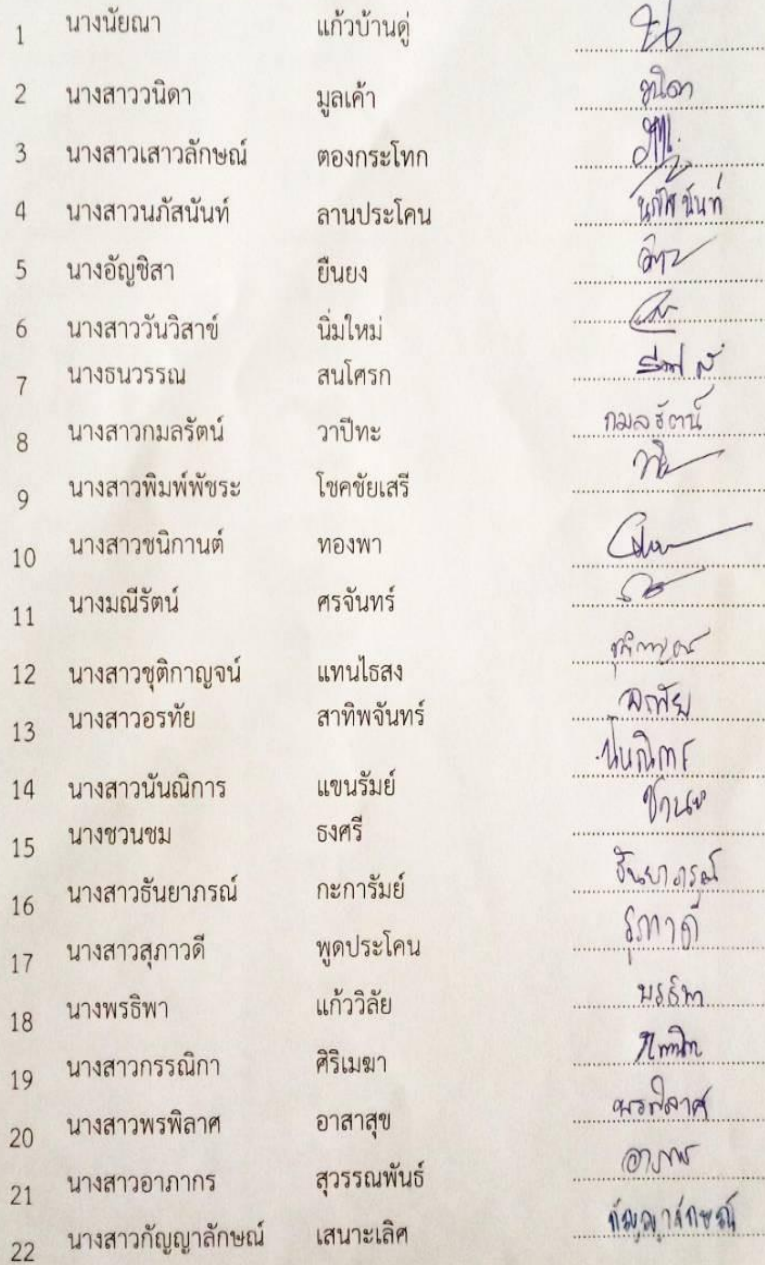 1 นางนัยณา แก้วบ้านดู่
2 นางสาววนิดา มูลเค้า วนิดา
3 นางสาวเสาวลักษณ์ ตองกระโทก
4 นางสาวนภัสนันท์ ลานประโคน นภัสนันท์
5 นางอัญชิสา ยืนยง
6 นางสาววันวิสาข์ นิ่มใหม่
7 นางธนวรรณ สนโศรก
8 นางสาวกมลรัตน์ วาปีทะ กมลรัตน์
9 นางสาวพิมพ์พัชระ โชคชัยเสรี
10 นางสาวชนิกานต์ ทองพา
11 นางมณีรัตน์ ศรจันทร์
12 นางสาวชุติกาญจน์ แทนไธสง
13 นางสาวอรทัย สาทิพจันทร์ อรทัย
14 นางสาวนันณิการ แขนรัมย์ นันณิการ
15 นางชวนชม ธงศรี
16 นางสาวธันยาภรณ์ กะการัมย์ ธันยาภรณ์
17 นางสาวสุภาวดี พูดประโคน
18 นางพรธิพา แก้ววิลัย พรธิพา
19 นางสาวกรรณิกา ศิริเมฆา
20 นางสาวพรพิลาศ อาสาสุข พรพิลาศ
21 นางสาวอาภากร สุวรรณพันธ์
22 นางสาวกัญญาลักษณ์ เสนาะเลิศ กัญญาลักษณ์